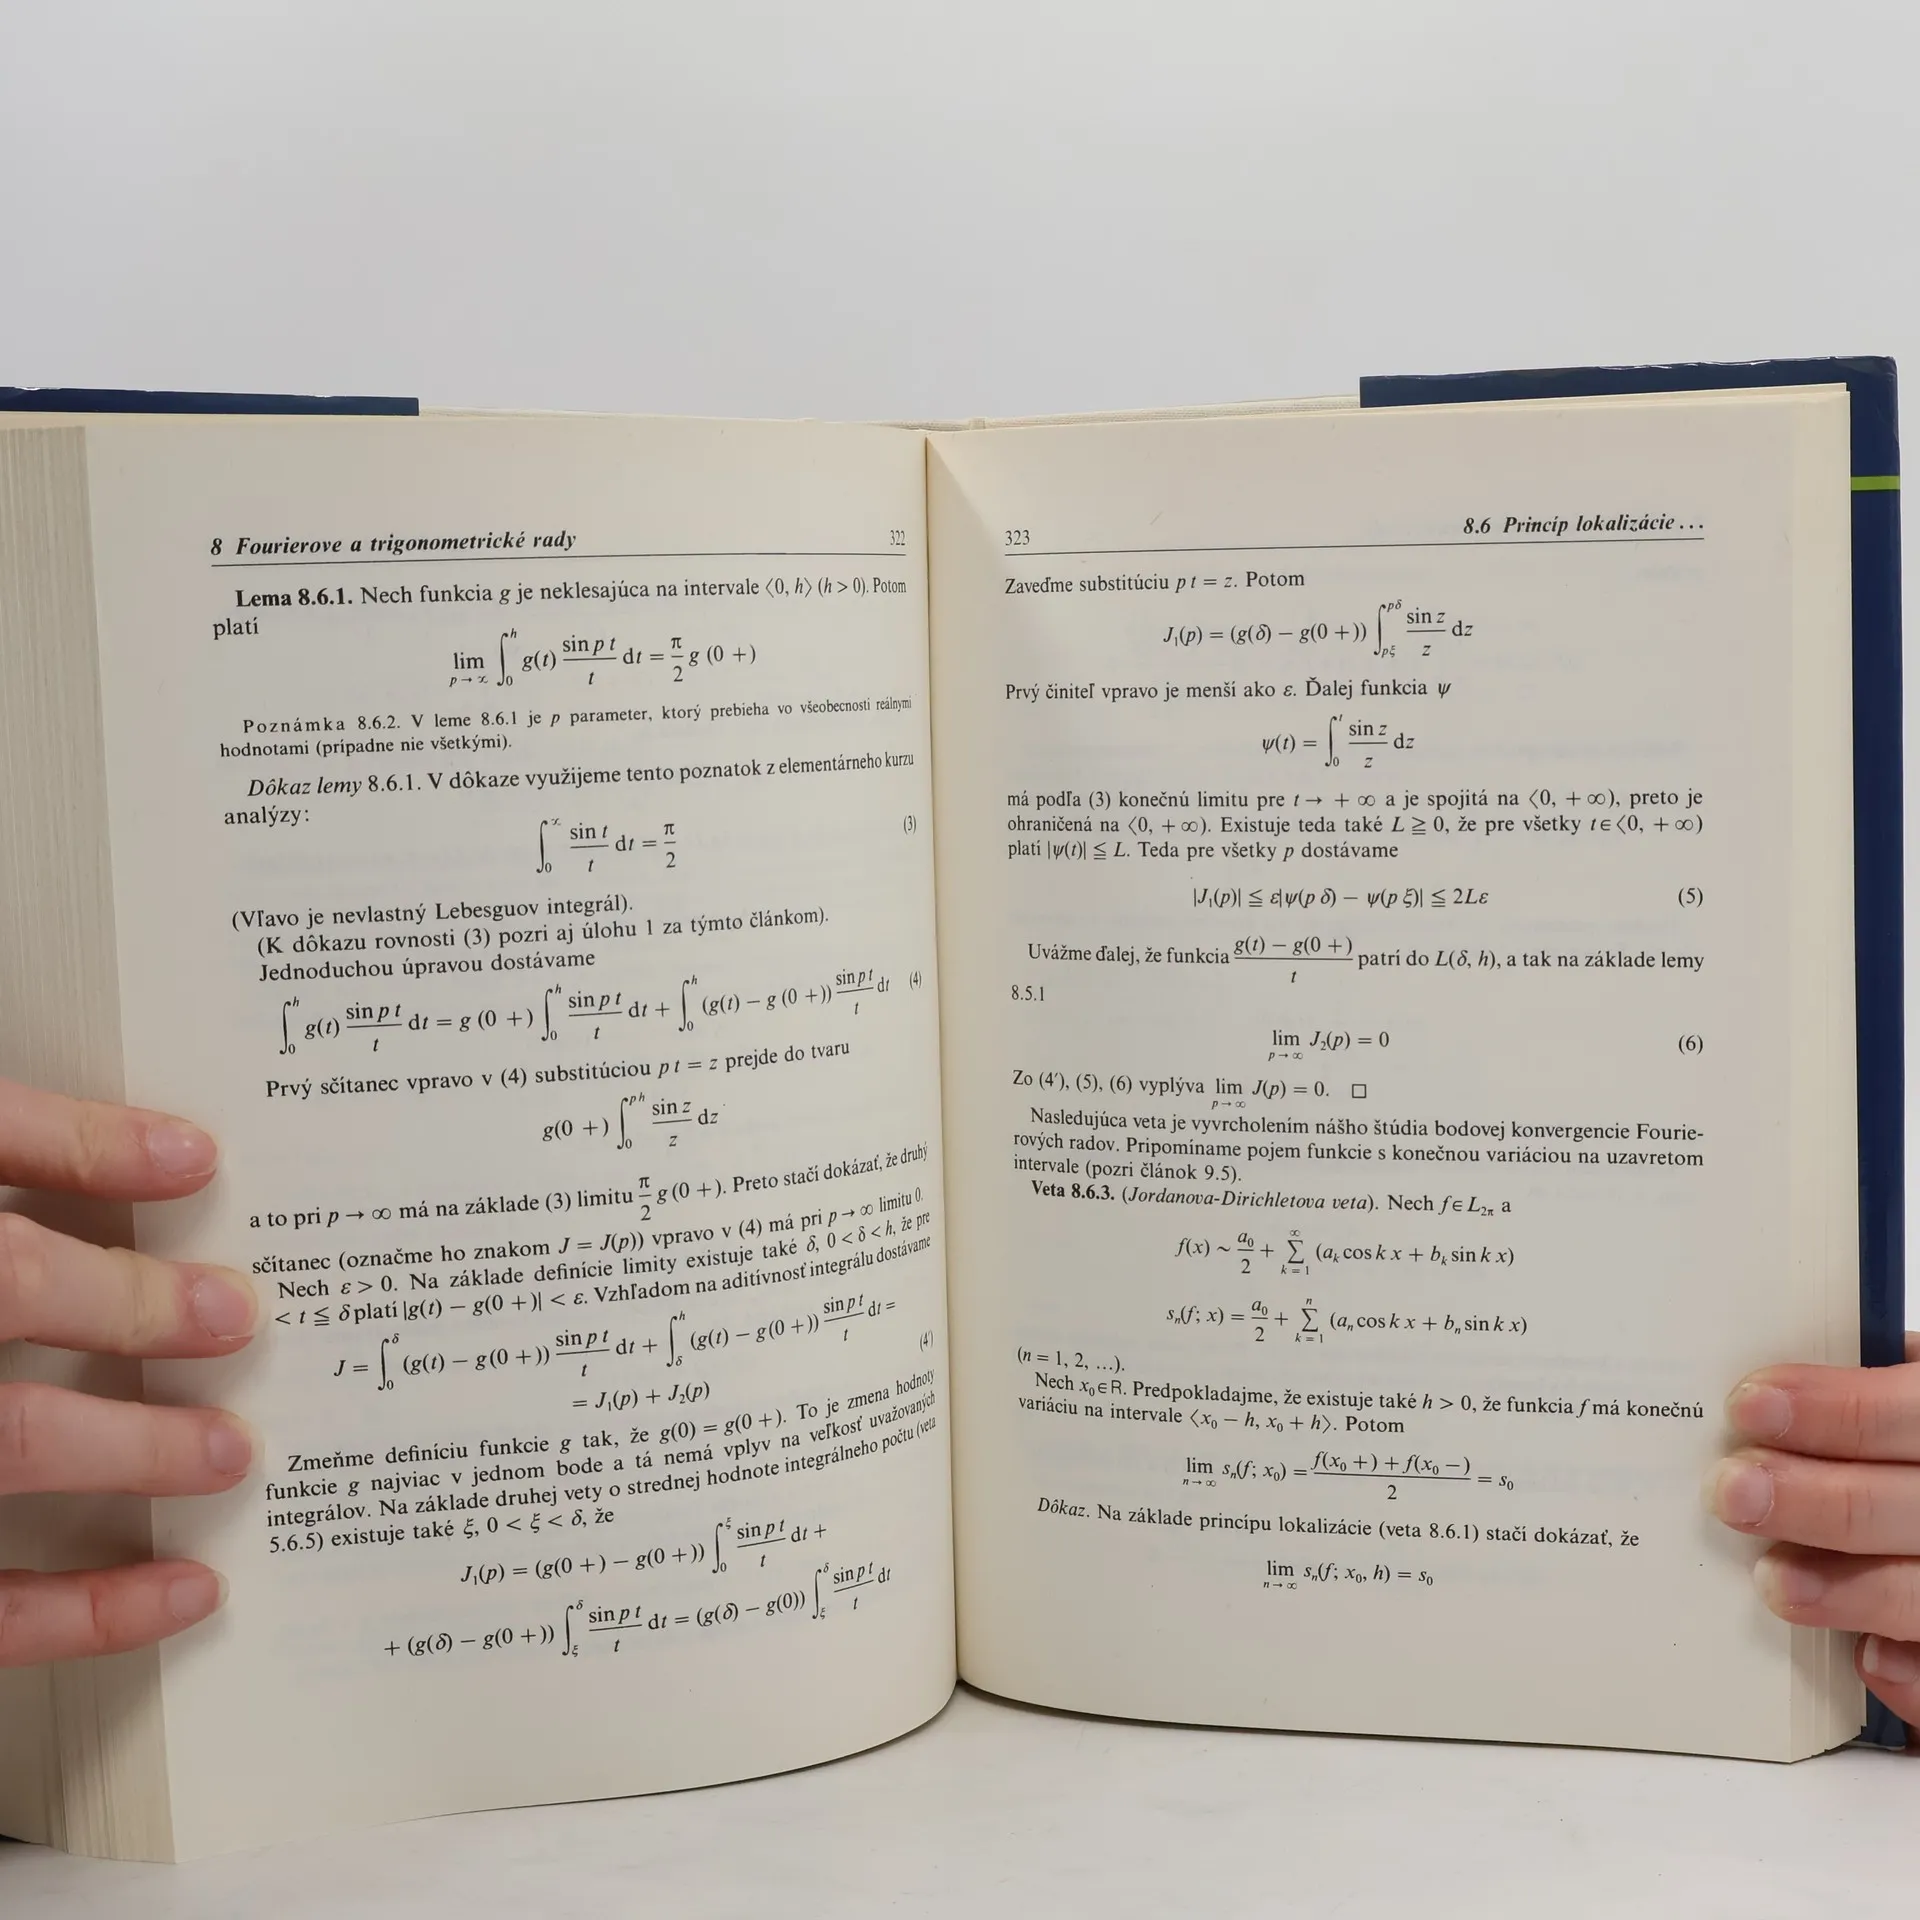 8 Fourierove a trigonometrické rady 322
Lema 8.6.1. Nech funkcia g je neklesajúca na intervale ⟨0, h⟩ (h > 0). Potom
platí
lim_{p→∞} ∫_0^h g(t) \frac{sin p t}{t} dt = \frac{π}{2} g (0 +)
Poznámka 8.6.2. V leme 8.6.1 je p parameter, ktorý prebieha vo všeobecnosti reálnymi
hodnotami (prípadne nie všetkými).
Dôkaz lemy 8.6.1. V dôkaze využijeme tento poznatok z elementárneho kurzu
analýzy:
∫_0^∞ \frac{sin t}{t} dt = \frac{π}{2} (3)
(Vľavo je nevlastný Lebesguov integrál).
(K dôkazu rovnosti (3) pozri aj úlohu 1 za týmto článkom).
Jednoduchou úpravou dostávame
∫_0^h g(t) \frac{sin p t}{t} dt = g (0 +) ∫_0^h \frac{sin p t}{t} dt + ∫_0^h (g(t) − g (0 +)) \frac{sin p t}{t} dt (4)
Prvý sčítanec vpravo v (4) substitúciou p t = z prejde do tvaru
g(0 +) ∫_0^{ph} \frac{sin z}{z} dz
a to pri p → ∞ má na základe (3) limitu \frac{π}{2} g (0 +). Preto stačí dokázať, že druhý
sčítanec (označme ho znakom J = J(p)) vpravo v (4) má pri p → ∞ limitu 0.
Nech ε > 0. Na základe definície limity existuje také δ, 0 < δ < h, že pre
< t ≦ δ platí |g(t) − g(0 +)| < ε. Vzhľadom na aditívnosť integrálu dostávame
J = ∫_0^δ (g(t) − g(0 +)) \frac{sin p t}{t} dt + ∫_δ^h (g(t) − g(0 +)) \frac{sin p t}{t} dt =
= J_1(p) + J_2(p) (4′)
Zmeňme definíciu funkcie g tak, že g(0) = g(0 +). To je zmena hodnoty
funkcie g najviac v jednom bode a tá nemá vplyv na veľkosť uvažovaných
integrálov. Na základe druhej vety o strednej hodnote integrálneho počtu (veta
5.6.5) existuje také ξ, 0 < ξ < δ, že
J_1(p) = (g(0 +) − g(0 +)) ∫_0^ξ \frac{sin p t}{t} dt +
+ (g(δ) − g(0 +)) ∫_ξ^δ \frac{sin p t}{t} dt = (g(δ) − g(0)) ∫_ξ^δ \frac{sin p t}{t} dt
323 8.6 Princíp lokalizácie ...
Zaveďme substitúciu p t = z. Potom
J_1(p) = (g(δ) − g(0 +)) ∫_{pξ}^{pδ} \frac{sin z}{z} dz
Prvý činiteľ vpravo je menší ako ε. Ďalej funkcia ψ
ψ(t) = ∫_0^t \frac{sin z}{z} dz
má podľa (3) konečnú limitu pre t → + ∞ a je spojitá na ⟨0, + ∞), preto je
ohraničená na ⟨0, + ∞). Existuje teda také L ≧ 0, že pre všetky t ∈ ⟨0, + ∞)
platí |ψ(t)| ≦ L. Teda pre všetky p dostávame
|J_1(p)| ≦ ε|ψ(p δ) − ψ(p ξ)| ≦ 2Lε (5)
Uvážme ďalej, že funkcia \frac{g(t) − g(0 +)}{t} patrí do L(δ, h), a tak na základe lemy
8.5.1
lim_{p→∞} J_2(p) = 0 (6)
Zo (4′), (5), (6) vyplýva lim_{p→∞} J(p) = 0. □
Nasledujúca veta je vyvrcholením nášho štúdia bodovej konvergencie Fourie-
rových radov. Pripomíname pojem funkcie s konečnou variáciou na uzavretom
intervale (pozri článok 9.5).
Veta 8.6.3. (Jordanova-Dirichletova veta). Nech f ∈ L_{2π} a
f(x) ~ \frac{a_0}{2} + ∑_{k=1}^∞ (a_k cos k x + b_k sin k x)
s_n(f; x) = \frac{a_0}{2} + ∑_{k=1}^n (a_n cos k x + b_n sin k x)
(n = 1, 2, ...).
Nech x_0 ∈ R. Predpokladajme, že existuje také h > 0, že funkcia f má konečnú
variáciu na intervale ⟨x_0 − h, x_0 + h⟩. Potom
lim_{n→∞} s_n(f; x_0) = \frac{f(x_0 +) + f(x_0 −)}{2} = s_0
Dôkaz. Na základe princípu lokalizácie (veta 8.6.1) stačí dokázať, že
lim_{n→∞} s_n(f; x_0, h) = s_0